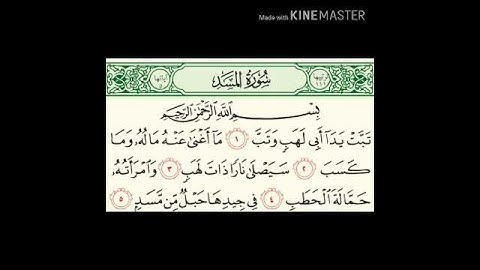 Made with KINEMASTER
سُورَةُ المَسَدِ
بِسْمِ اللَّهِ الرَّحْمَٰنِ الرَّحِيمِ
تَبَّتْ يَدَا أَبِي لَهَبٍ وَتَبَّ ١ مَا أَغْنَىٰ عَنْهُ مَالُهُ وَمَا
كَسَبَ ٢ سَيَصْلَىٰ نَارًا ذَاتَ لَهَبٍ ٣ وَامْرَأَتُهُ
حَمَّالَةَ الْحَطَبِ ٤ فِي جِيدِهَا حَبْلٌ مِّن مَّسَدٍ ٥